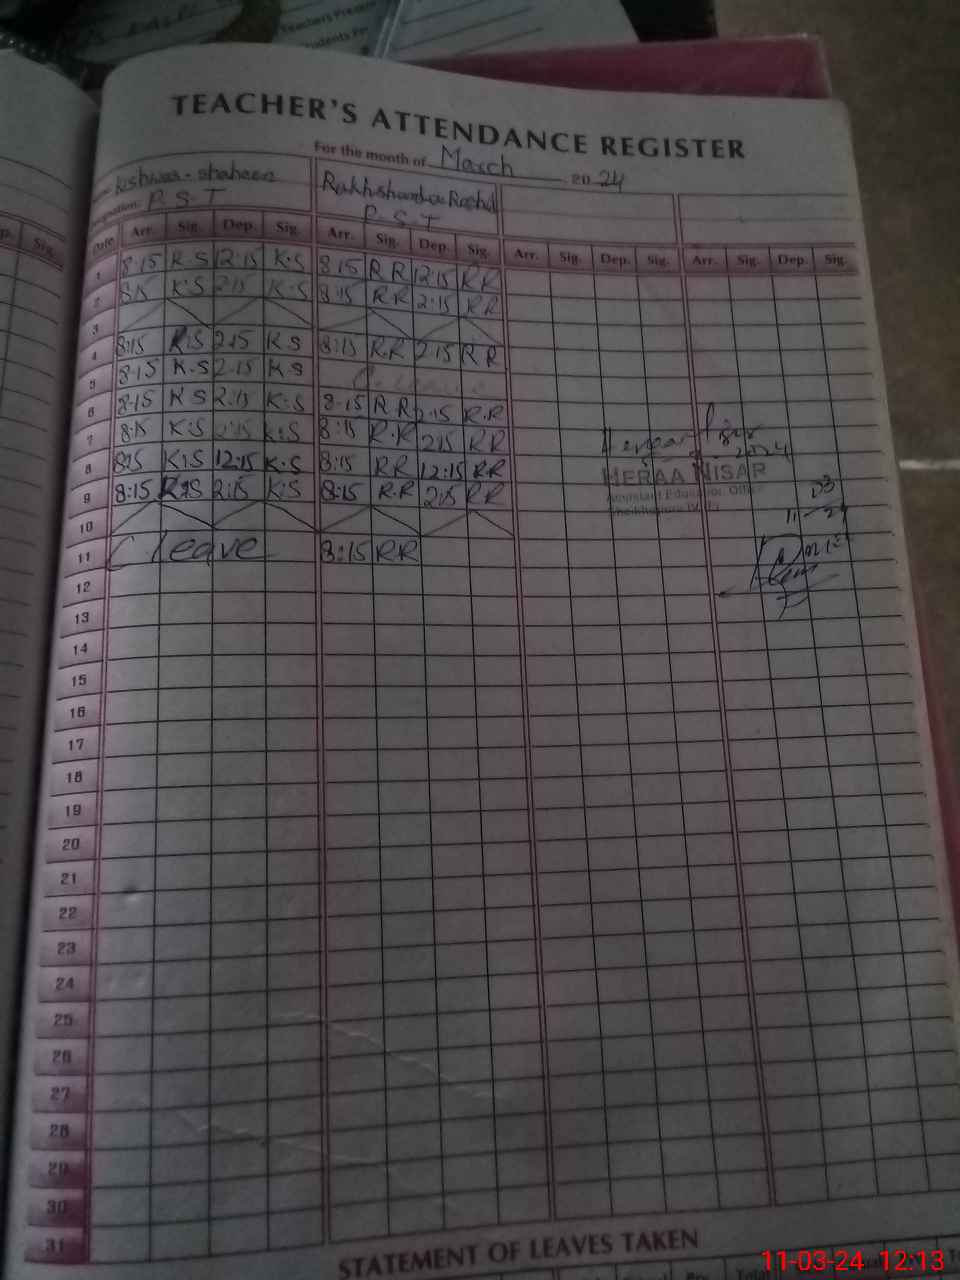 Teachers Presen
Students Pre
TEACHER'S ATTENDANCE REGISTER
For the month of March 2024
Kishwar-shaheen
P.S.T P.S.T
p. Sig. Date Arr. Sig. Dep. Sig. Arr. Sig. Dep. Sig. Arr. Sig. Dep. Sig. Arr. Sig. Dep. Sig.
1 8:15 K.S 12:15 K.S 8:15 RR 12:15 RR
2 8:15 K.S 2:15 K.S 8:15 RR 2:15 RR
3
4 8:15 K.S 2:15 K.S 8:15 R.R 2:15 RR
5 8:15 K.S 2:15 K.S
6 8:15 K.S 2:15 K.S 8:15 RR 2:15 R.R
7 8:15 K.S 2:15 K.S 8:15 R.R 2:15 RR
8 8:15 K.S 12:15 K.S 8:15 RR 12:15 RR
9 8:15 K.S 2:15 K.S 8:15 R.R 2:15 RR
HERAA NISAR
Assistant Education Officer
10
11 C leave 8:15 RR
12
13
14
15
16
17
18
19
20
21
22
23
24
25
26
27
28
29
30
31
STATEMENT OF LEAVES TAKEN
11-03-24 12:13